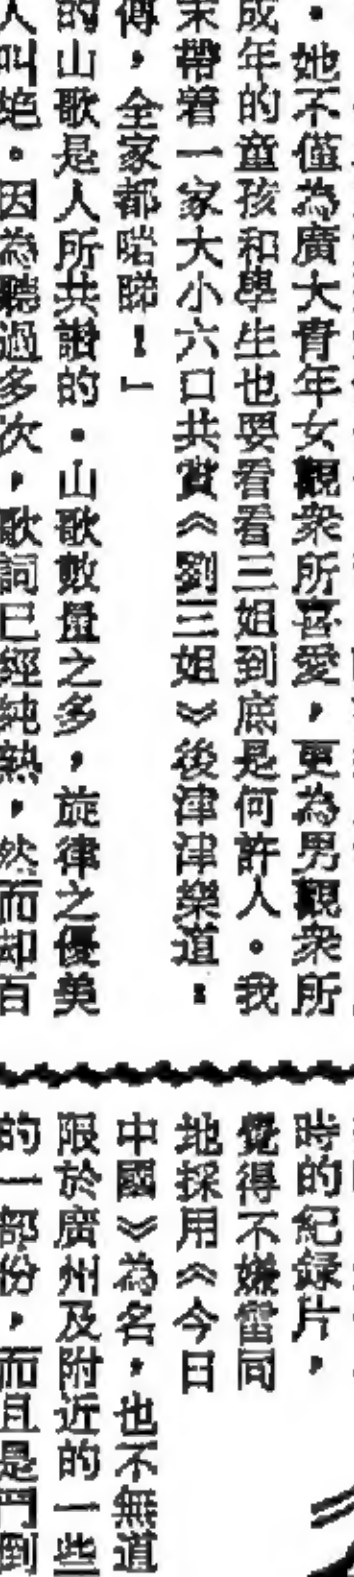 。她不僅為廣大青年女觀衆所喜愛，更為男觀衆所
成年的童孩和學生也要看看三姐到底是何許人。我
末帶着一家大小六口共賞《劉三姐》後津津樂道：
傳，全家都啱睇！」
的山歌是人所共讃的。山歌數量之多，旋律之優美
人叫絕。因為聽過多次，歌詞已經純熟，然而却百
時的紀錄片，
覺得不嫌雷同
地採用《今日
中國》為名，也不無道
限於廣州及附近的一些
的一部份，而且是門倒